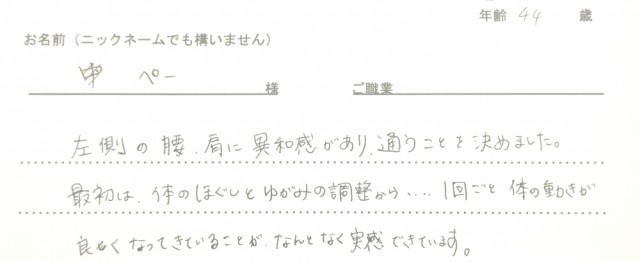 年齢 44 歳
お名前(ニックネームでも構いません)
中 ペー 様 ご職業
左側の腰、肩に異和感があり、通うことを決めました。
最初は、体のほぐしとゆがみの調整から‥‥1回ごと体の動きが
良くなってきていることが、なんとなく実感できています。